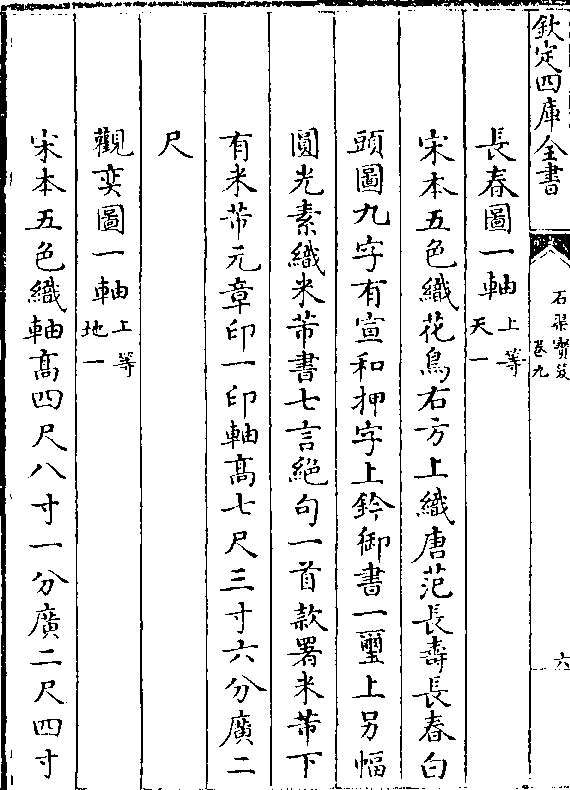 欽定四庫全書
石渠寶笈
卷九
六
長春圖一軸上等天一
宋本五色織花鳥右方上織唐范長壽長春白
頭圖九字有宣和押字上鈐御書一璽上另幅
圓光素織米芾書七言絶句一首款署米芾下
有米芾元章印一印軸高七尺三寸六分廣二
尺
觀奕圖一軸上等地一
宋本五色織軸高四尺八寸一分廣二尺四寸